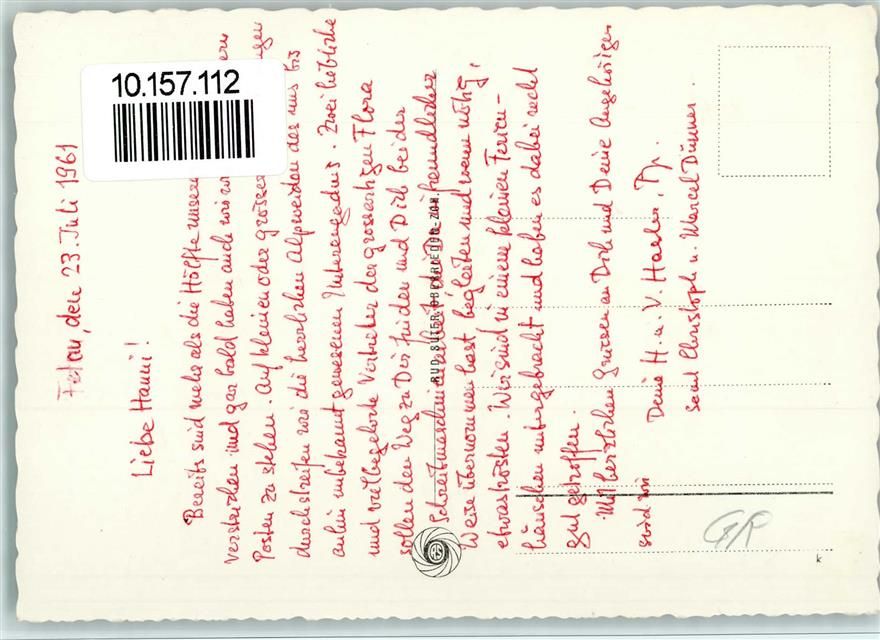 10.157.112
Fetan, den 23. Juli 1961
Liebe Hanni!
Bereits sind mehr als die Hälfte unserer
verstrichen und gar bald haben auch wir
Posten zu stehen. Auf kleinen oder grösseren
durchstreifen wir die herrlichen Alpweiden des uns bis
anhin unbekannt gewesenen Unterengadins. Zwei liebliche
und vielbegehrte Vertreter der grossartigen Flora
sollen den Weg zu Dir finden und Dich bei der
Schreibmaschinenarbeit, die Du in freundlicher
Weise übernommen hast begleiten und wenn nötig,
etwas trösten. Wir sind in einem kleinen Ferien-
häuschen untergebracht und haben es dabei recht
gut getroffen.
Mit herzlichen Grüssen an Dich und Deine Angehörigen
sind wir
Deine H. u. V. Hasler,
samt Christoph u. Marcel Dünner.
RUD. SUTER, OBERRIEDEN-ZCH.
GR
K